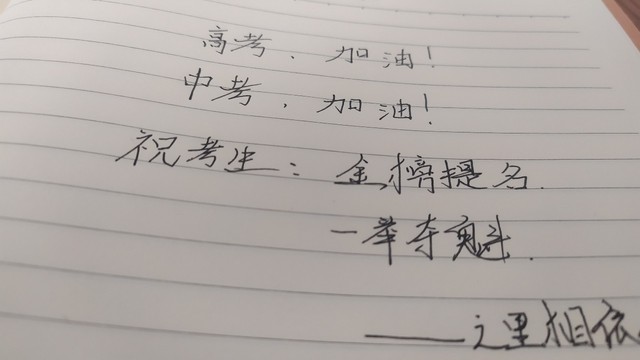 高考，加油！
中考，加油！
祝考生：金榜提名.
一举夺魁.
——之里相依